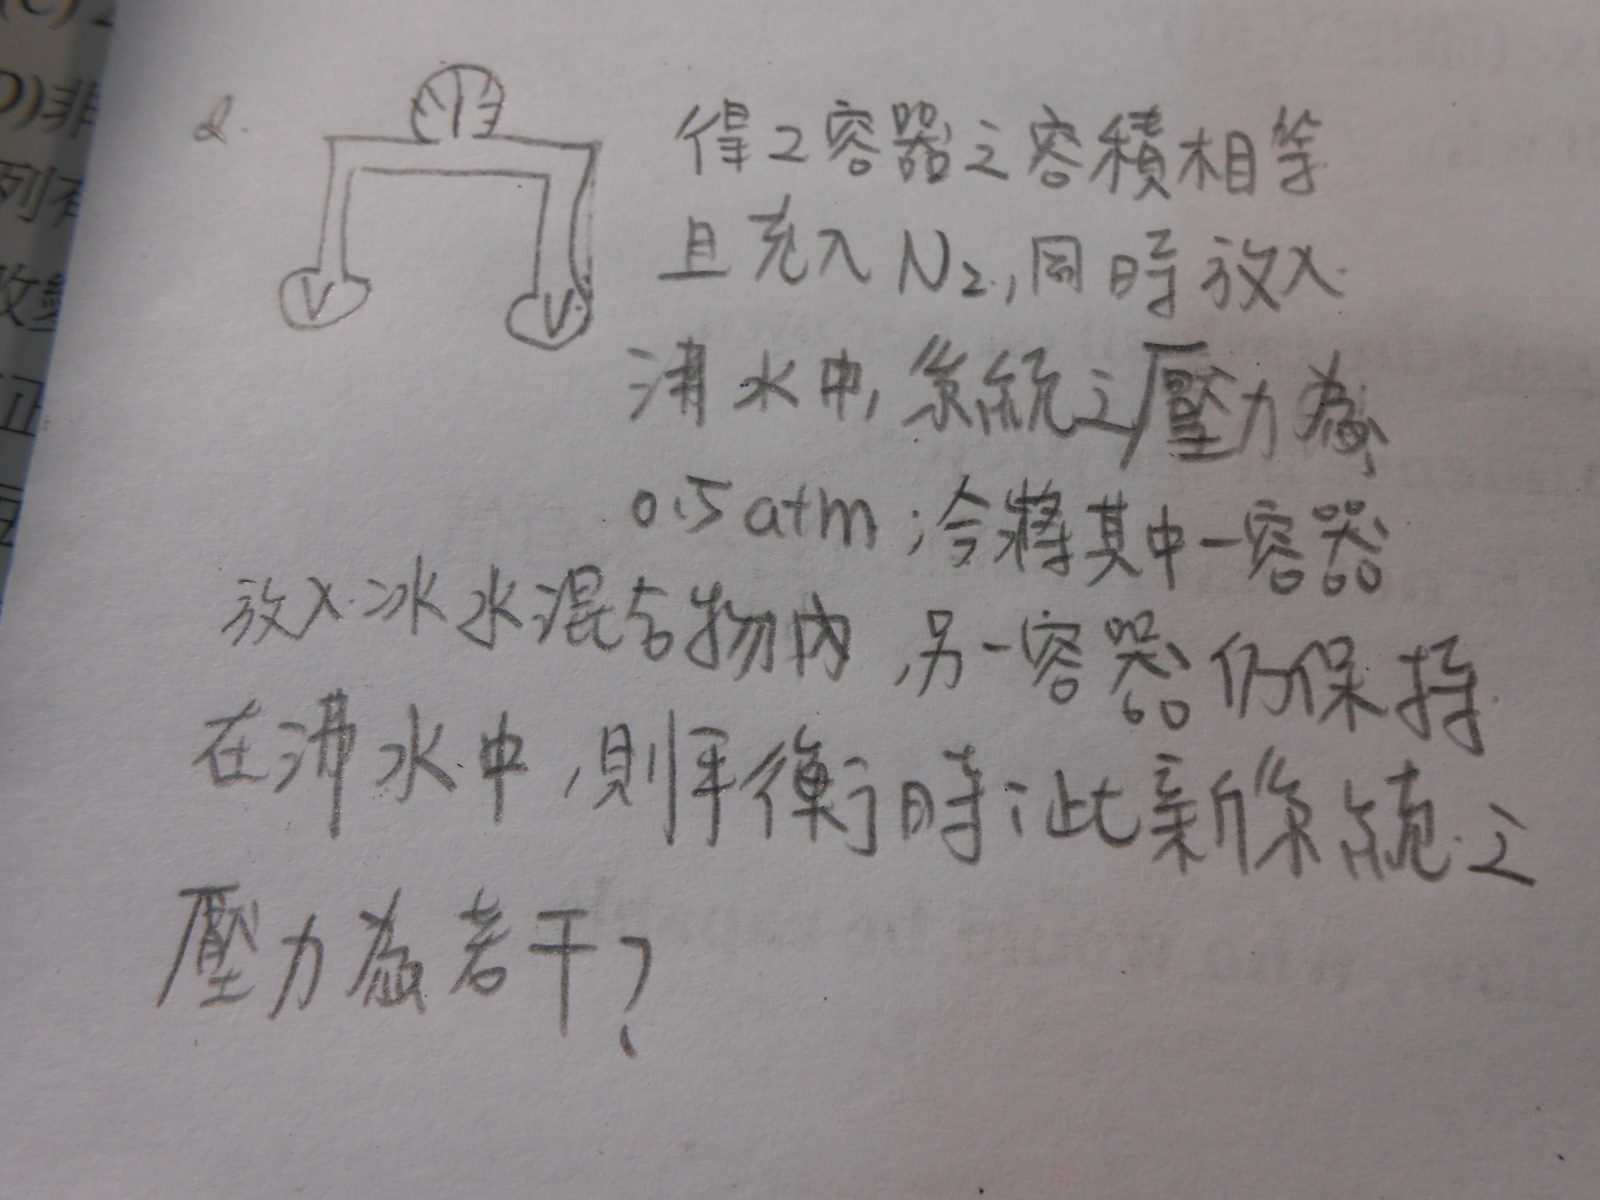 2.
得2容器之容積相等
且充入N2,同時放入
沸水中,系統之壓力為
0.5atm;今將其中一容器
放入冰水混合物內,另一容器仍保持
在沸水中,則平衡時;此新系統之
壓力為若干?
V
V
D)非
列有
正